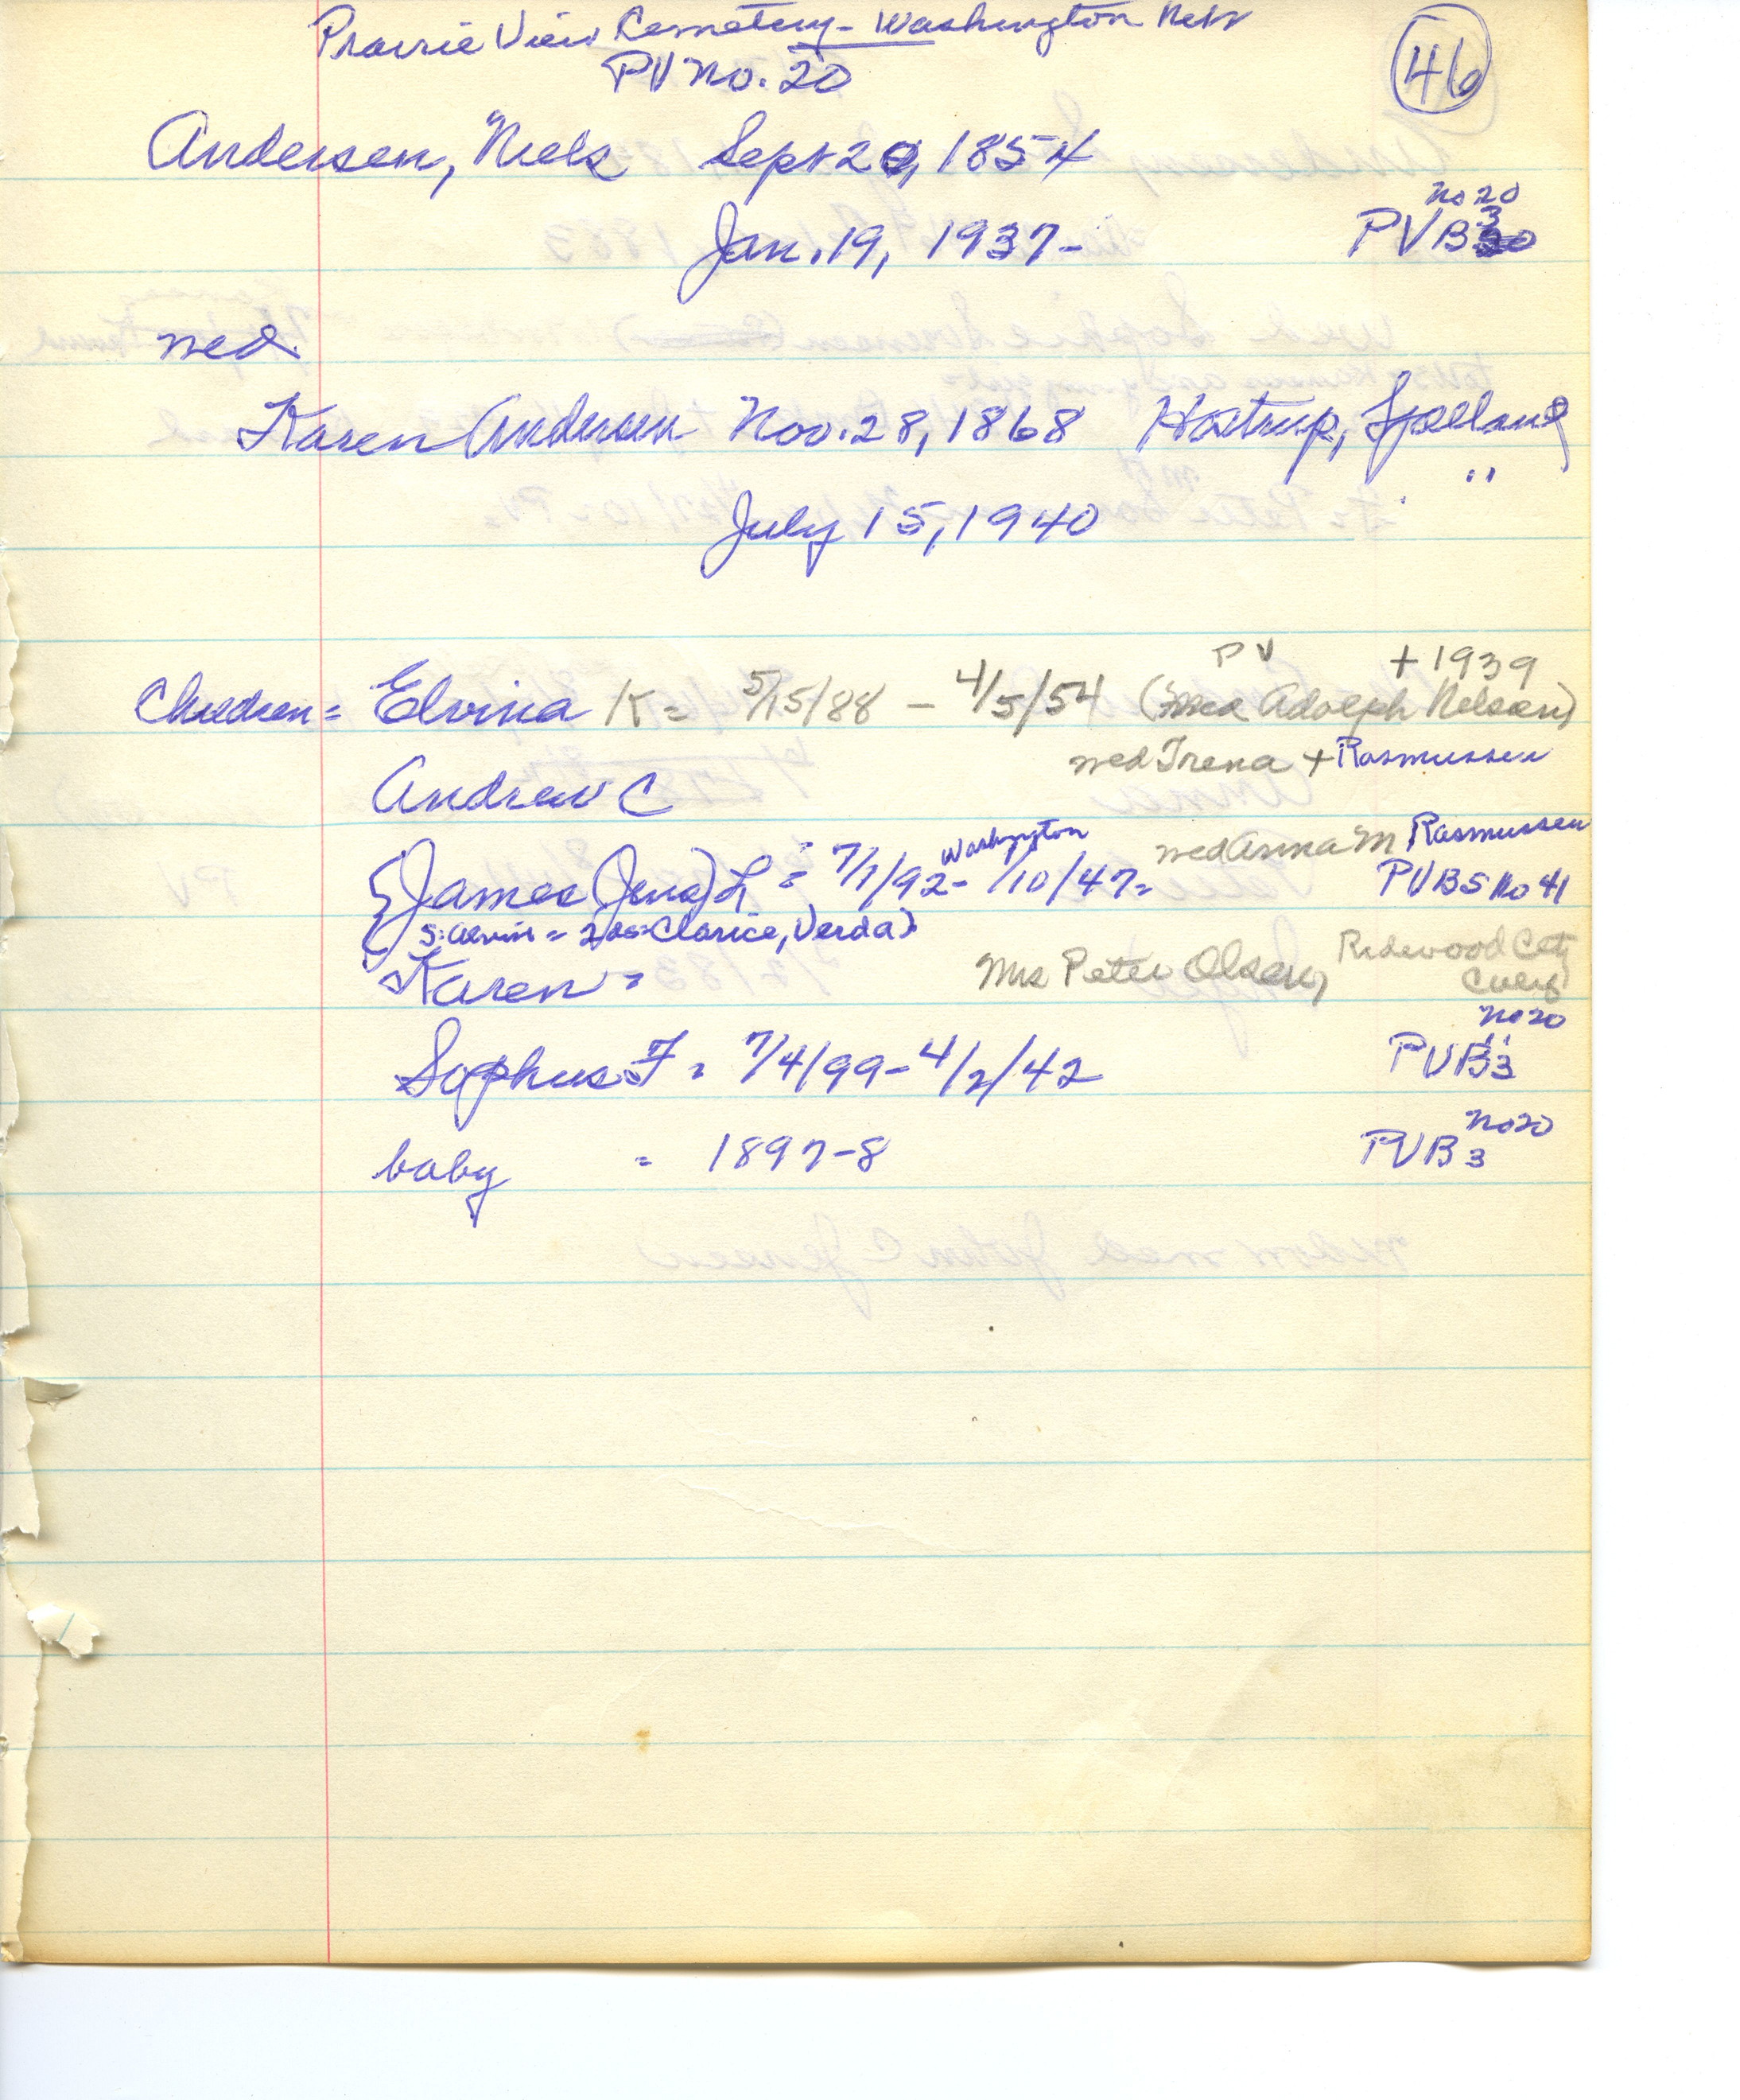 Prairie View Cemetery - Washington Nebr
PV No. 20
46
Andersen, Niels Sept 20, 1854
Jan. 19, 1937 -
No 20
PVB 3
med
Karen Andersen Nov. 28, 1868 Hastrup, Sjelland
"
July 15, 1940
PV + 1939
Children = Elvina K = 5/15/88 - 4/5/54 (med Adolph Nelsen)
med Trena + Rasmussen
Andrew C
Washington med Anna M Rasmussen
James (Jens) L = 7/1/92 - /10/47 = PVB5 No 41
S: Alvin = 2 ds: Clarice, Verda)
Karen = Mrs Peter Olsen, Redewood City
No 20
Sophus F = 7/4/99 - 4/2/42 PVB3
No 20
baby = 1897-8 PVB 3